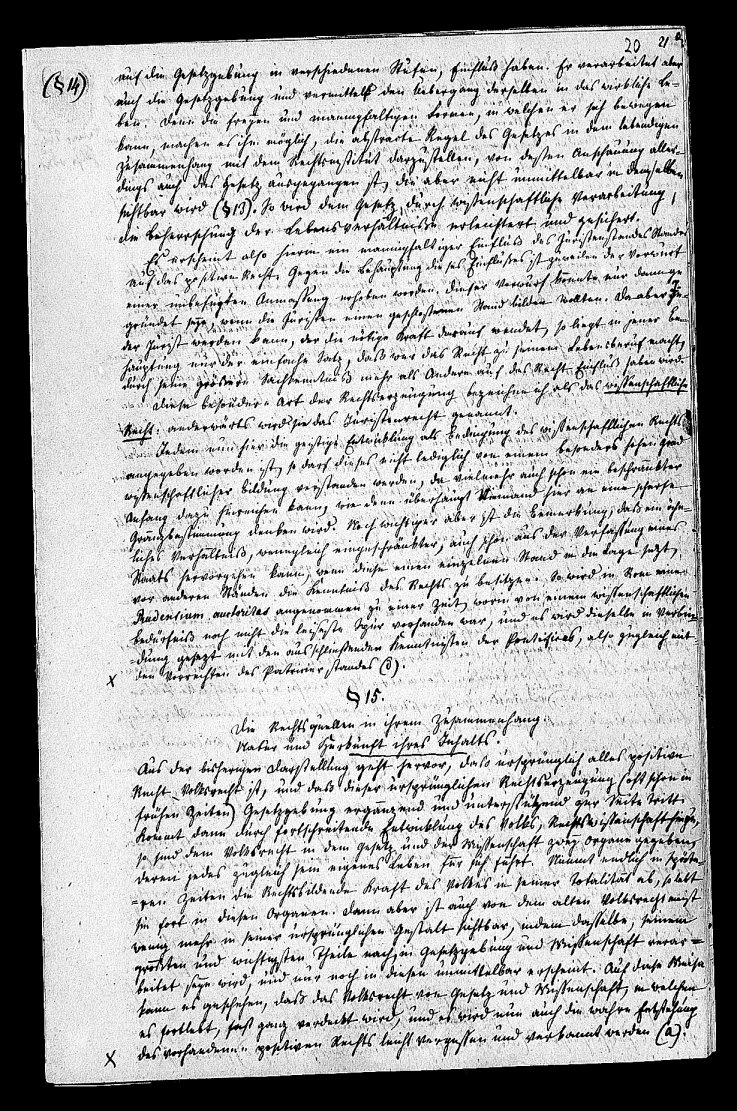 20 21
(§ 14)
auf die Gesetzgebung in verschiedenen Stufen, Einfluß haben. Er verarbeitet aber
auch die Gesetzgebung und vermittelt den Uebergang derselben in das wirkliche Le-
ben. Denn die freyen und mannigfaltigen Formen, in welchen er sich bewegen
kann, machen es ihm möglich, die abstracte Regel des Gesetzes in dem lebendigen
Zusammenhang mit dem Rechtsinstitut darzustellen, von dessen Anschauung aller-
dings auch das Gesetz ausgegangen ist, die aber nicht unmittelbar in demselben
sichtbar wird (§ 13). So wird dem Gesetz, durch wissenschaftliche Verarbeitung,
die Beherrschung der Lebensverhältnisse erleichtert und gesichert.
Es erscheint also hierin ein mannigfaltiger Einfluß des Juristenstandes
auf das positive Recht. Gegen die Behauptung dieses Einflusses ist zuweilen der Vorwurf
einer unbefugten Anmaßung erhoben worden. Dieser Vorwurf könnte nur dann ge-
gründet seyn, wenn die Juristen einen geschlossenen Stand bilden wollten. Da aber Je-
der Jurist werden kann, der die nötige Kraft darauf wendet, so liegt in jener Be-
hauptung nur der einfache Satz, daß wer das Recht zu seinem Lebensberuf macht,
durch seine größere Sachkenntniß mehr als Andere auf das Recht Einfluß haben wird.
Diese besondere Art der Rechtserzeugung bezeichne ich als das wissenschaftliche
Recht: anderwärts wird sie das Juristenrecht genannt.
Indem nun hier die geistige Entwicklung als Bedingung des wissenschaftlichen Rechts
angegeben worden ist, so darf dieses nicht lediglich von einem besonders hohen Grad
wissenschaftlicher Bildung verstanden werden, da vielmehr auch schon ein beschränkter
Anfang dazu hinreichen kann, wie denn überhaupt Niemand hier an eine scharfe
Gränzbestimmung denken wird. Noch wichtiger aber ist die Bemerkung, daß ein ähn-
liches Verhältniß, wenngleich eingeschränkter, auch schon aus der Verfassung eines
Staats hervorgehen kann, wenn diese einen einzelnen Stand in die Lage setzt,
vor anderen Ständen die Kenntniß des Rechts zu besitzen. So wird in Rom eine
Prudentium auctoritas angenommen zu einer Zeit, worin von einem wissenschaftlichen
Bedürfniß noch nicht die leiseste Spur vorhanden war, und es wird dieselbe in Verbin-
dung gesetzt mit den ausschließenden Kenntnissen der Pontifices, also zugleich mit
den Vorrechten des Patricierstandes (d).
x
§ 15.
Die Rechtsquellen in ihrem Zusammenhang.
Natur und Herkunft ihres Inhalts.
Aus der bisherigen Darstellung geht hervor, daß ursprünglich alles positive
Recht Volksrecht ist, und daß dieser ursprünglichen Rechtserzeugung (oft schon in
frühen Zeiten) Gesetzgebung ergänzend und unterstützend zur Seite tritt.
Kommt dann durch fortschreitende Entwicklung des Volks, Rechtswissenschaft hinzu,
so sind dem Volksrecht in dem Gesetz und der Wissenschaft zwey Organe gegeben,
deren jedes zugleich sein eigenes Leben für sich führt. Nimmt endlich in späte-
ren Zeiten die Rechtsbildende Kraft des Volkes in seiner Totalität ab, so lebt
sie fort in diesen Organen. Dann aber ist auch von dem alten Volksrecht meist
wenig mehr in seiner ursprünglichen Gestalt sichtbar, indem dasselbe, seinem
größten und wichtigsten Theile nach, in Gesetzgebung und Wissenschaft verar-
beitet seyn wird, und nur noch in diesen unmittelbar erscheint. Auf diese Weise
kann es geschehen, daß das Volksrecht von Gesetz und Wissenschaft, in welchen
es fortlebt, fast ganz verdeckt wird, und es wird nun auch die wahre Entstehung
des vorhandenen positiven Rechts leicht vergessen und verkannt werden (a).
x